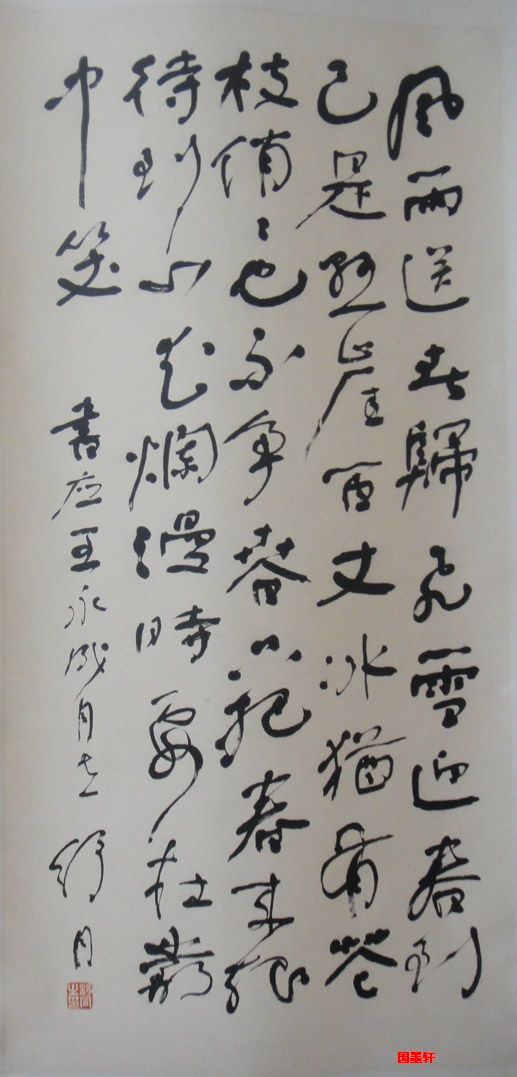 風雨送春歸飛雪迎春到
已是懸崖百丈冰猶有花
枝俏〻也不争春只把春来报
待到山花爛漫時在叢
中笑 書应王永成同志 舒同
国墨轩